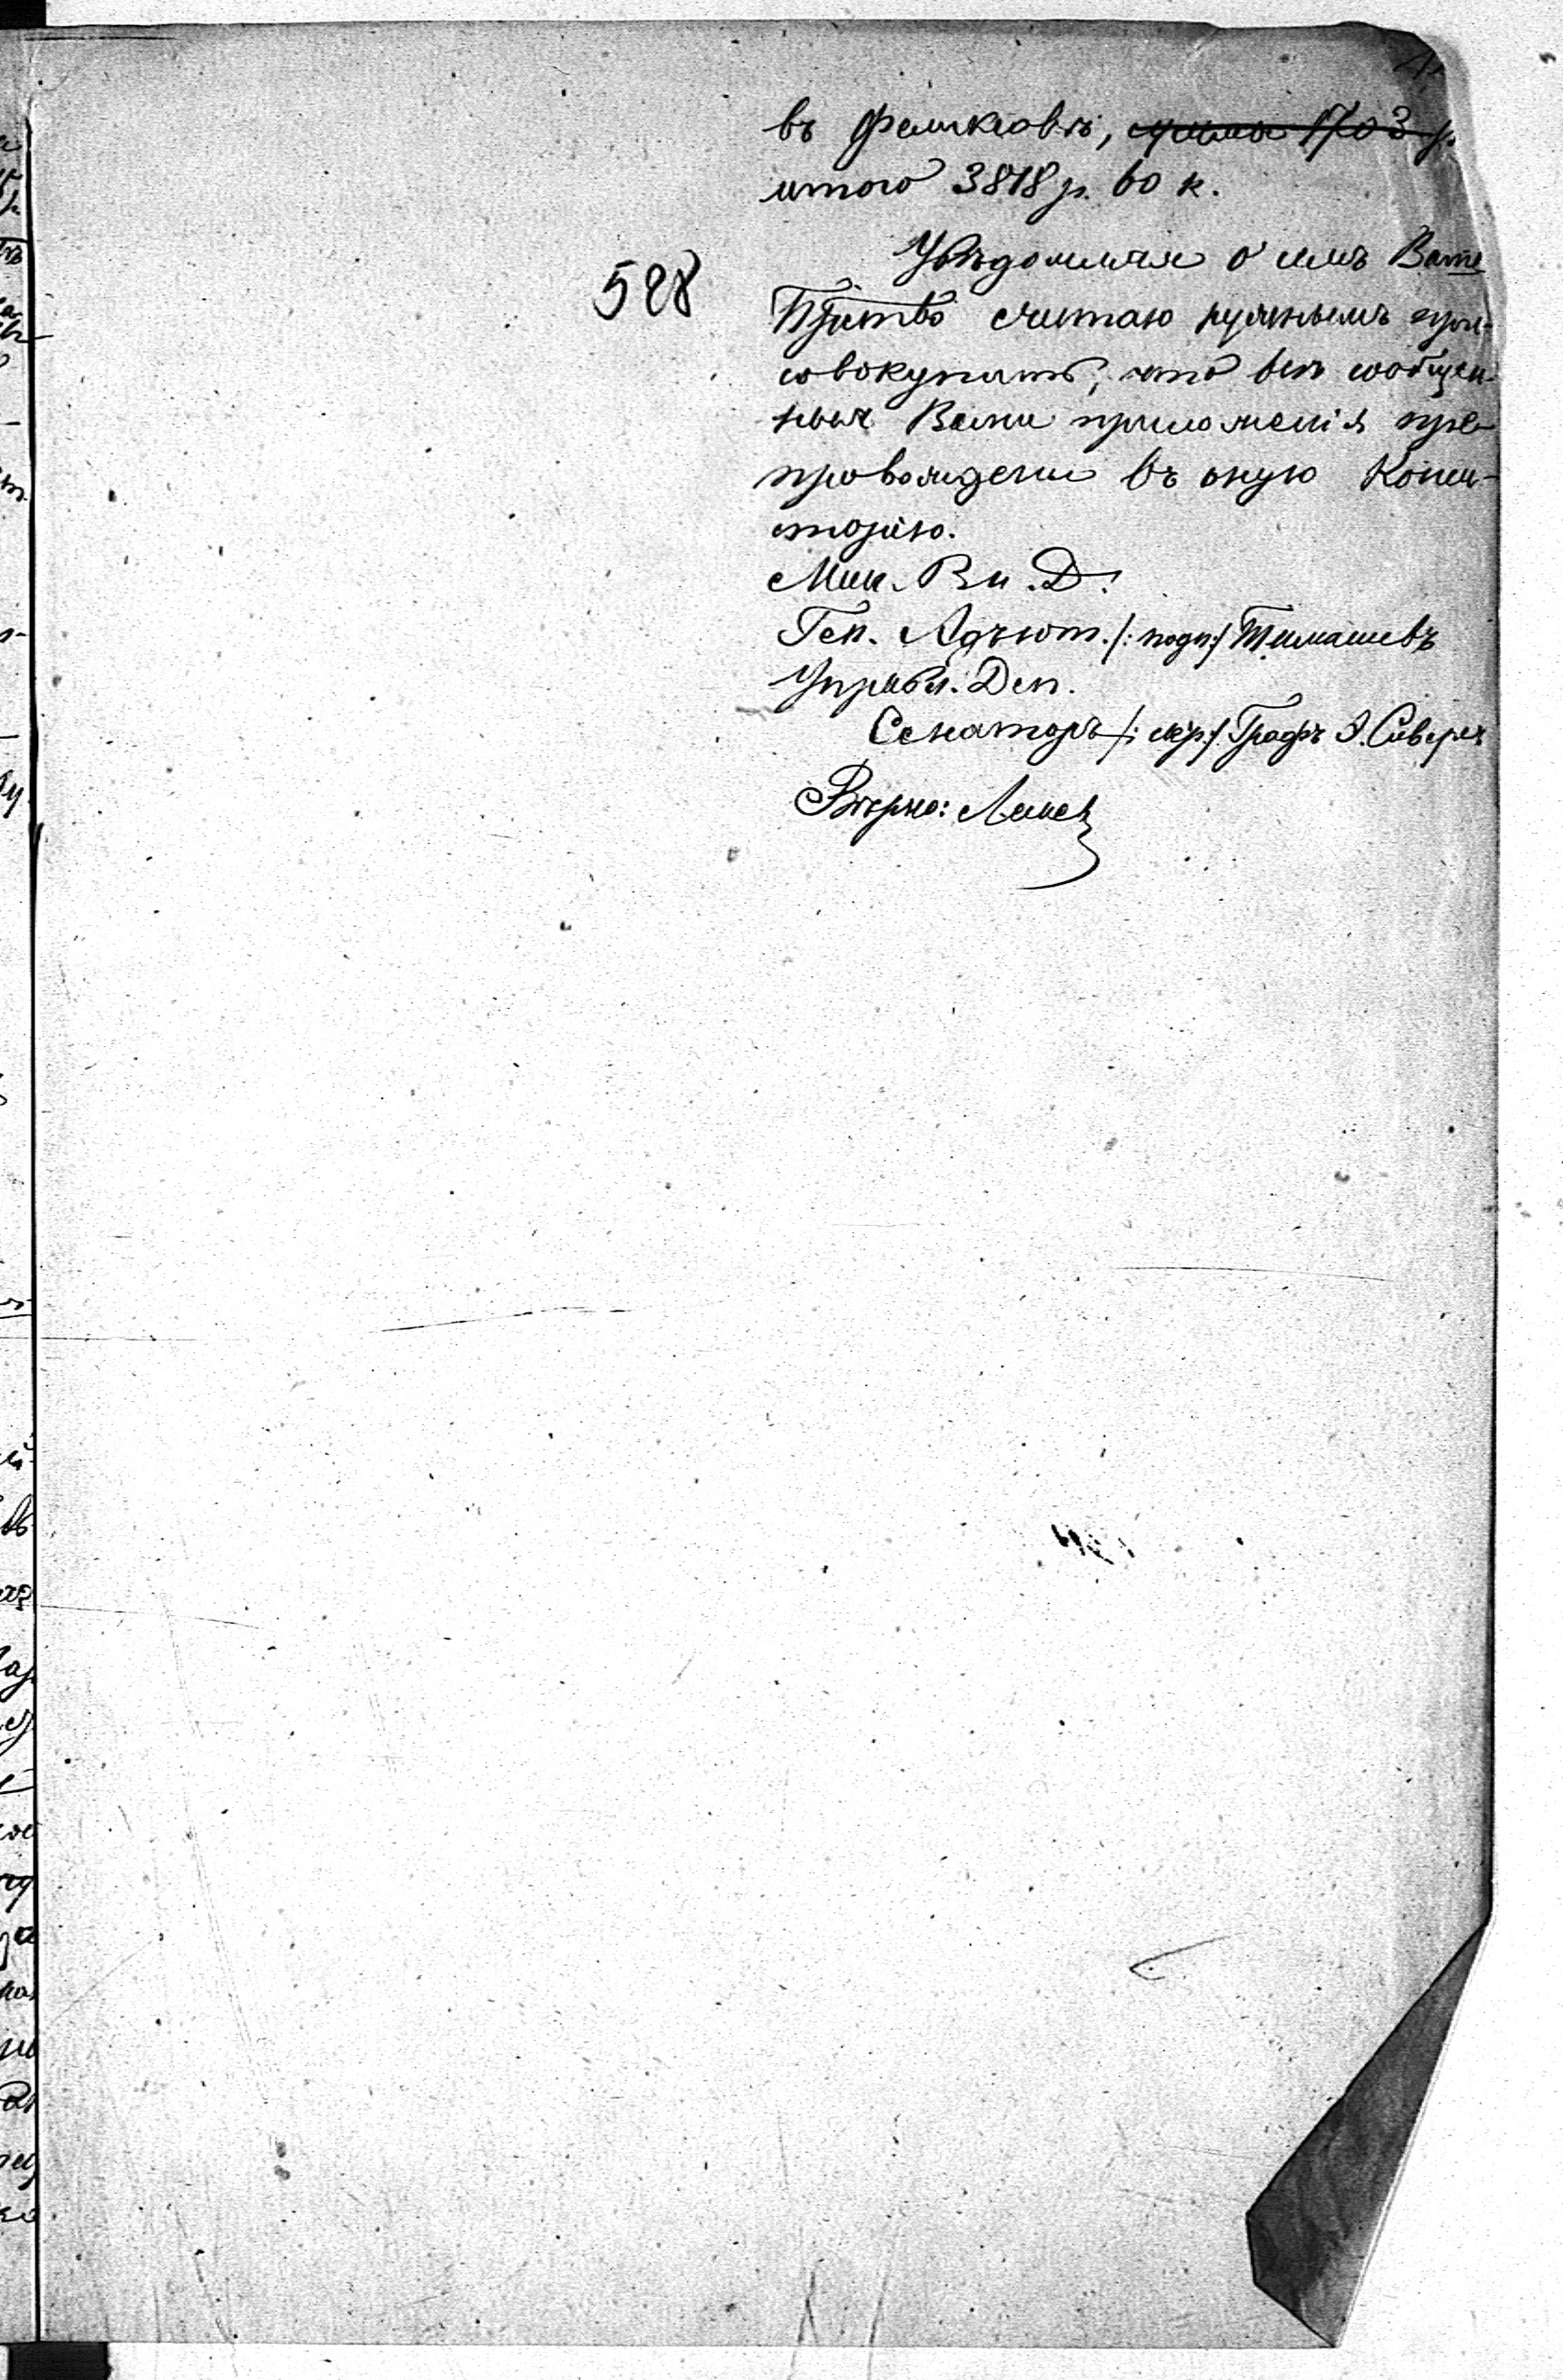 въ Феликсовѣ, ~~сумма 1703 р.~~
итого 3818 р. 60 к.
528
Увѣдомляя о семъ Ваше
Пр̃ство считаю нужнымъ при-
совокупить, что всѣ сообщен-
ныя Вами приложенія пре-
провождены въ оную Конси-
сторію.
Мин. Вн. Д.
Ген. Адъют. /: подп:/ Тимашевъ
Управл. Деп.
Сенаторъ /: скр:/ Графъ Э. Сиверсъ
Вѣрно: